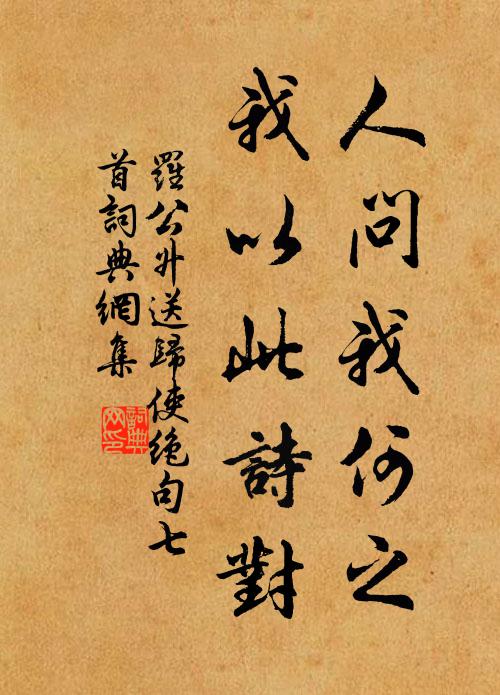 人問我何之
我以此詩對
羅公升送歸使絶句七
首詞典網集
詞典
网印